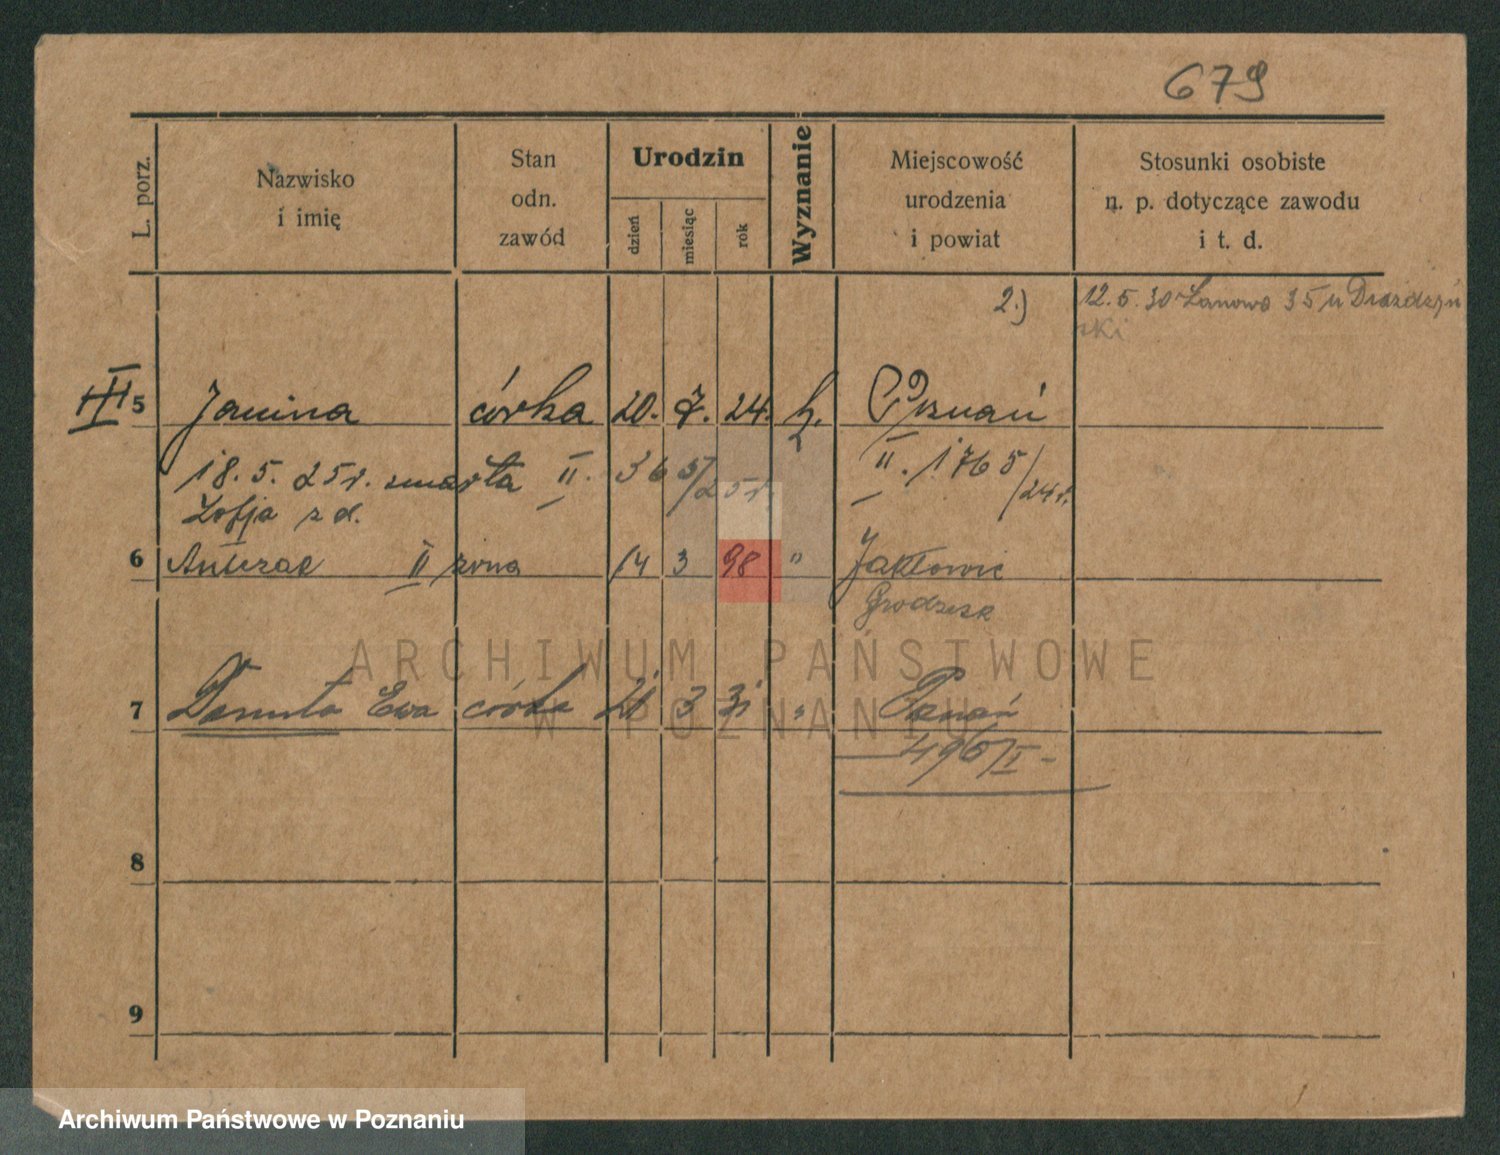 679
L. porz.
Nazwisko
i imię
Stan
odn.
zawód
Urodzin
dzień
miesiąc
rok
Wyznanie
Miejscowość
urodzenia
i powiat
Stosunki osobiste
n. p. dotyczące zawodu
i t. d.
2.) 12.5.30 Łanowa 35 u
5 Janina córka 20. 7. 24. Poznań
18.5.25r. zmarła II. 365/25r. II. 1765/24r.
Zofja z d.
6 Antczak II żona 14 3 98 "
Grodzisk
7 Danuta Ewa córka 21 3 31 " Poznań
496/I -
8
9
ARCHIWUM PAŃSTWOWE
W POZNANIU
Archiwum Państwowe w Poznaniu